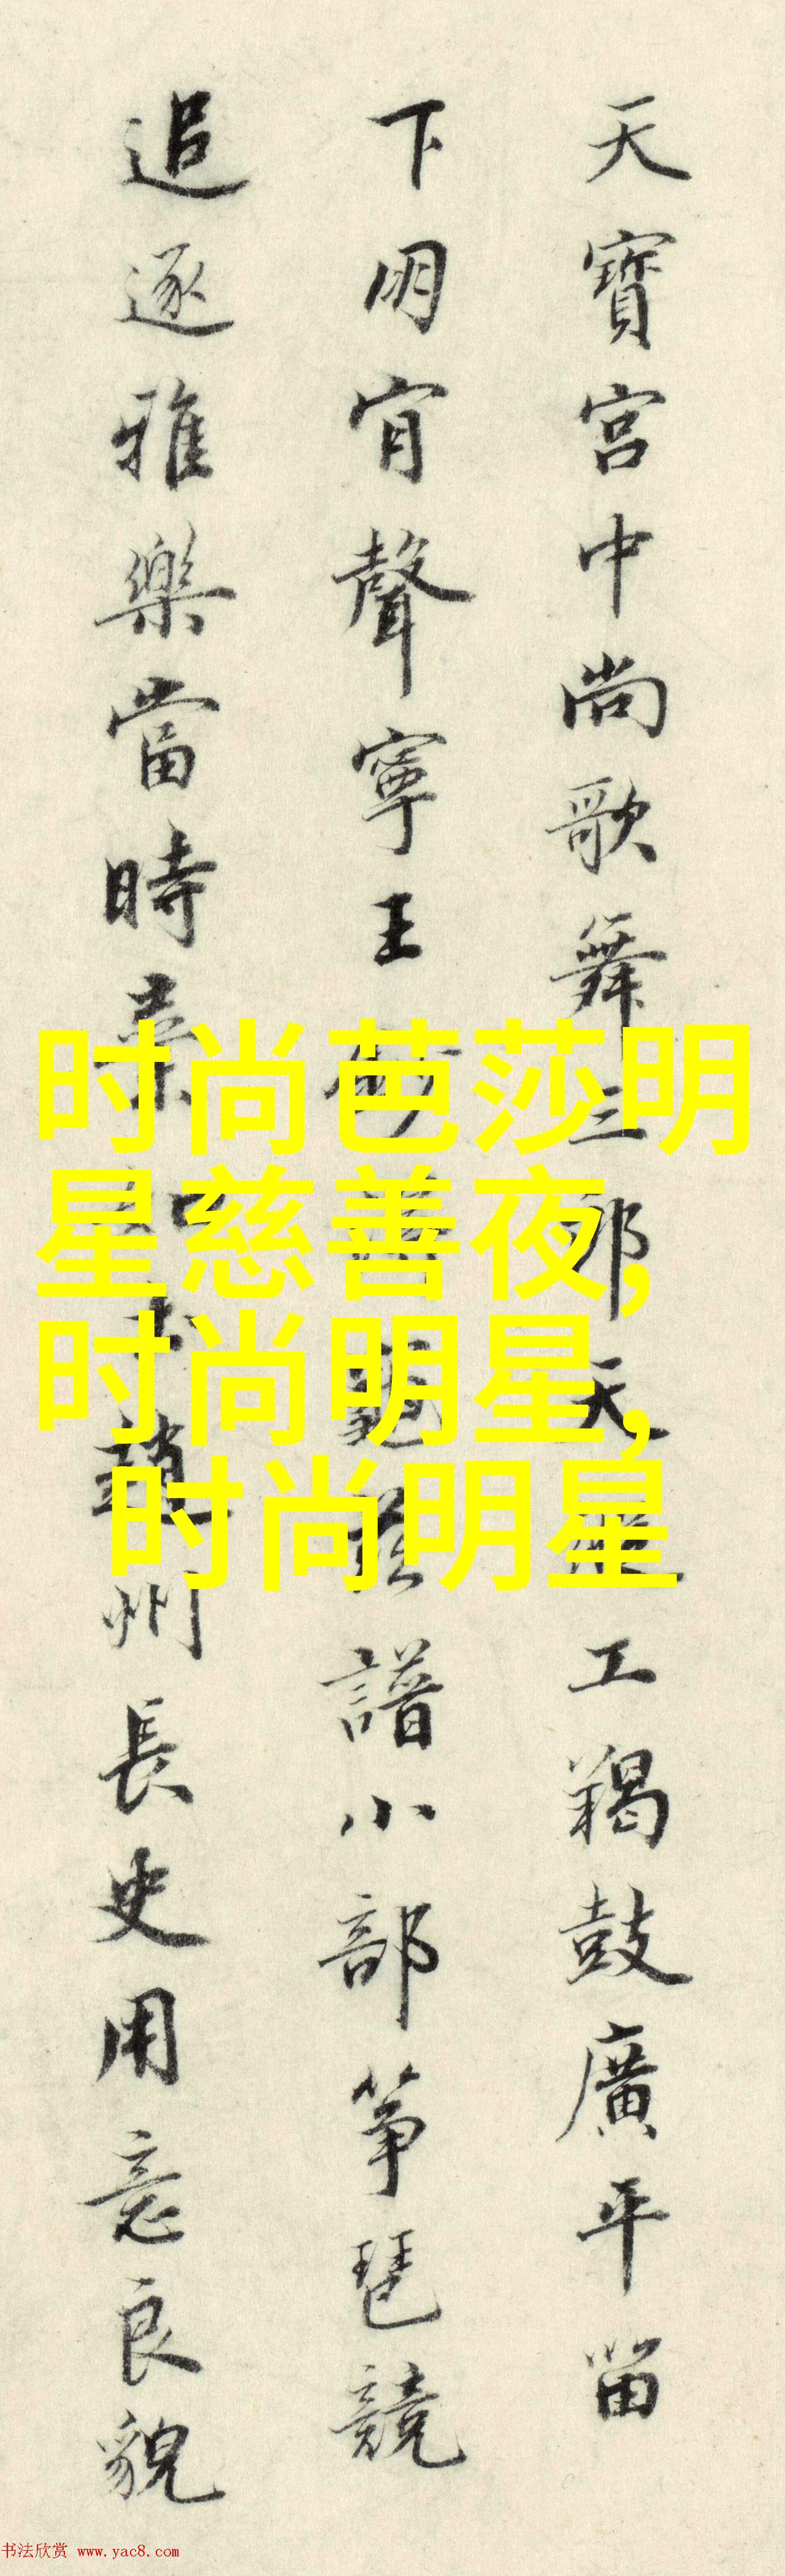 天寶宮中尚歌舞三郎天縱工羯鼓廣平留
下用宵聲寧王龜茲譜小部箏琶競
追逐雅樂當時棄州長史用意良貌
时尚芭莎明
星慈善夜,
时尚明星,
时尚明星
书法欣赏 www.yac8.com